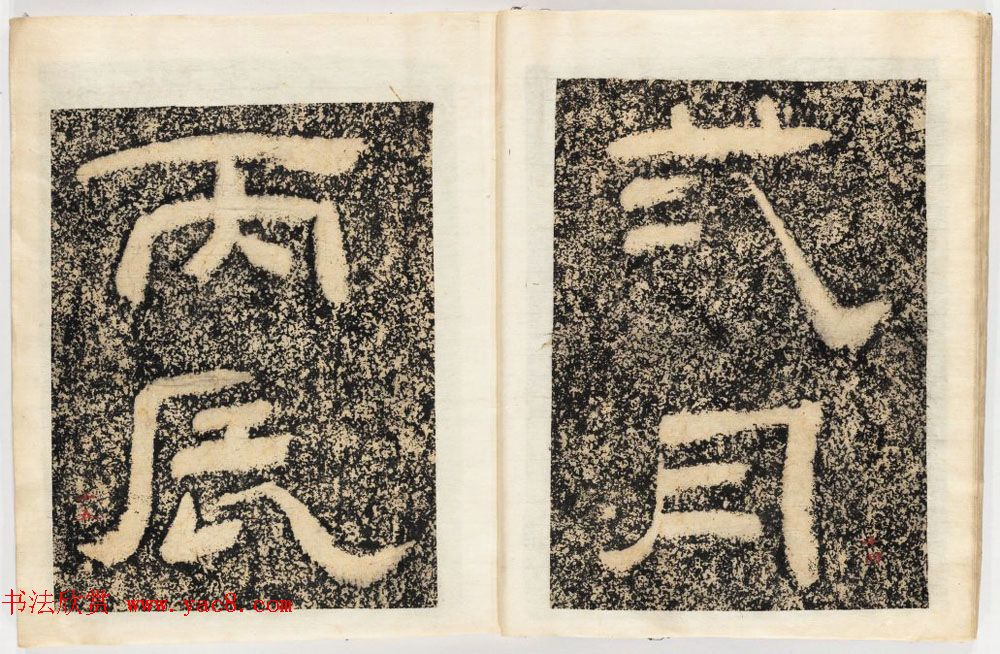 弍月
丙辰
书法欣赏 www.yac8.com